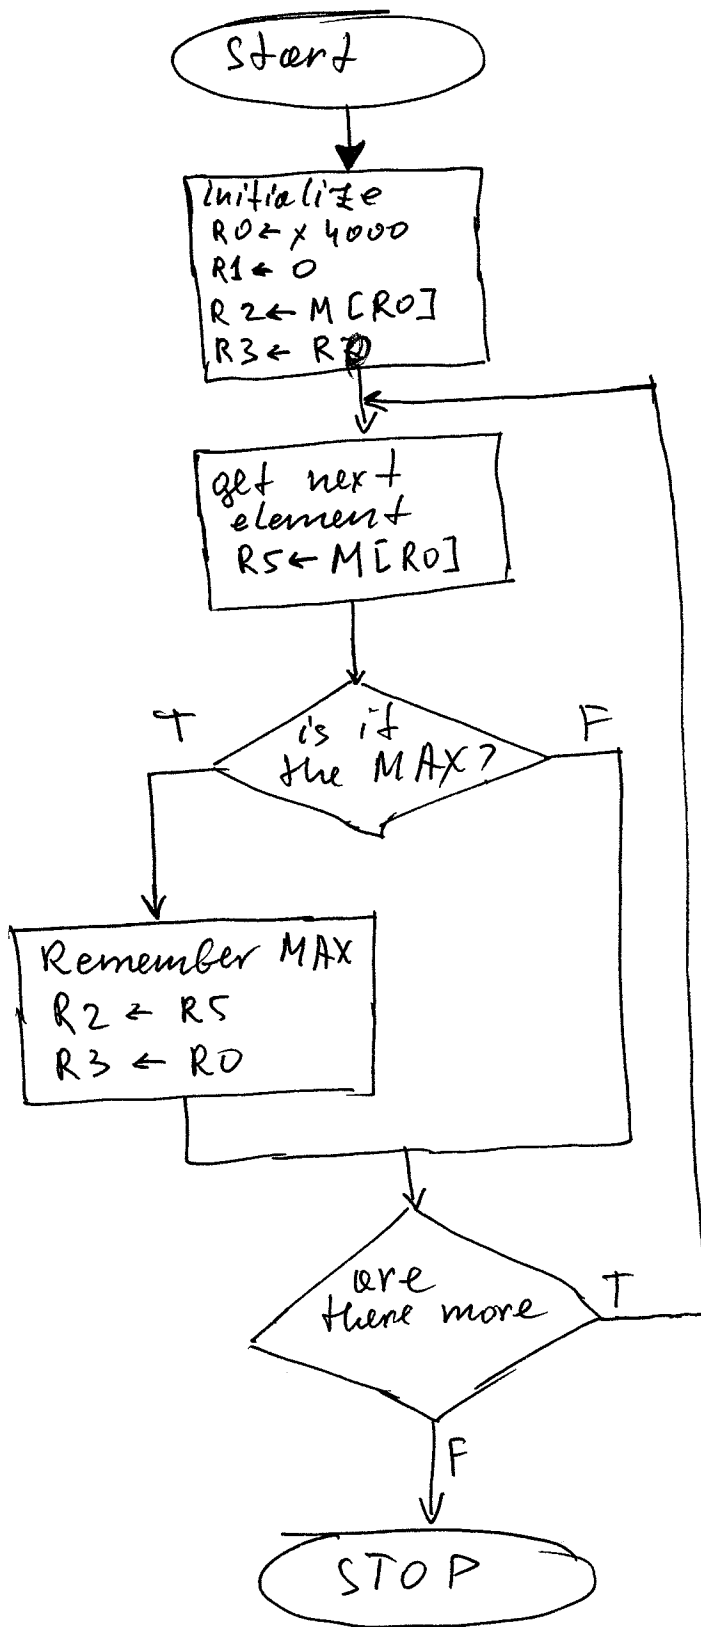 Start
Initialize
R0 ← x4000
R1 ← 0
R2 ← M[R0]
R3 ← R0
get next
element
R5 ← M[R0]
T
F
is it
the MAX?
Remember MAX
R2 ← R5
R3 ← R0
are
there more
T
F
STOP